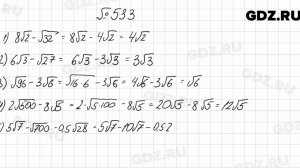 GDZ.RU
№533
1) 8√2 - √32 = 8√2 - 4√2 = 4√2
2) 6√3 - √27 = 6√3 - 3√3 = 3√3
) √96 - 3√6 = √16·6 - 3√6 = 4√6 - 3√6 = √6
) 2√500 - 8√5 = 2·5√100 - 8√5 = 20√5 - 8√5 = 12√5
) 5√7 - √700 - 0,5√28 = 5√7 - 10√7 - 0,52
GDZ.RU